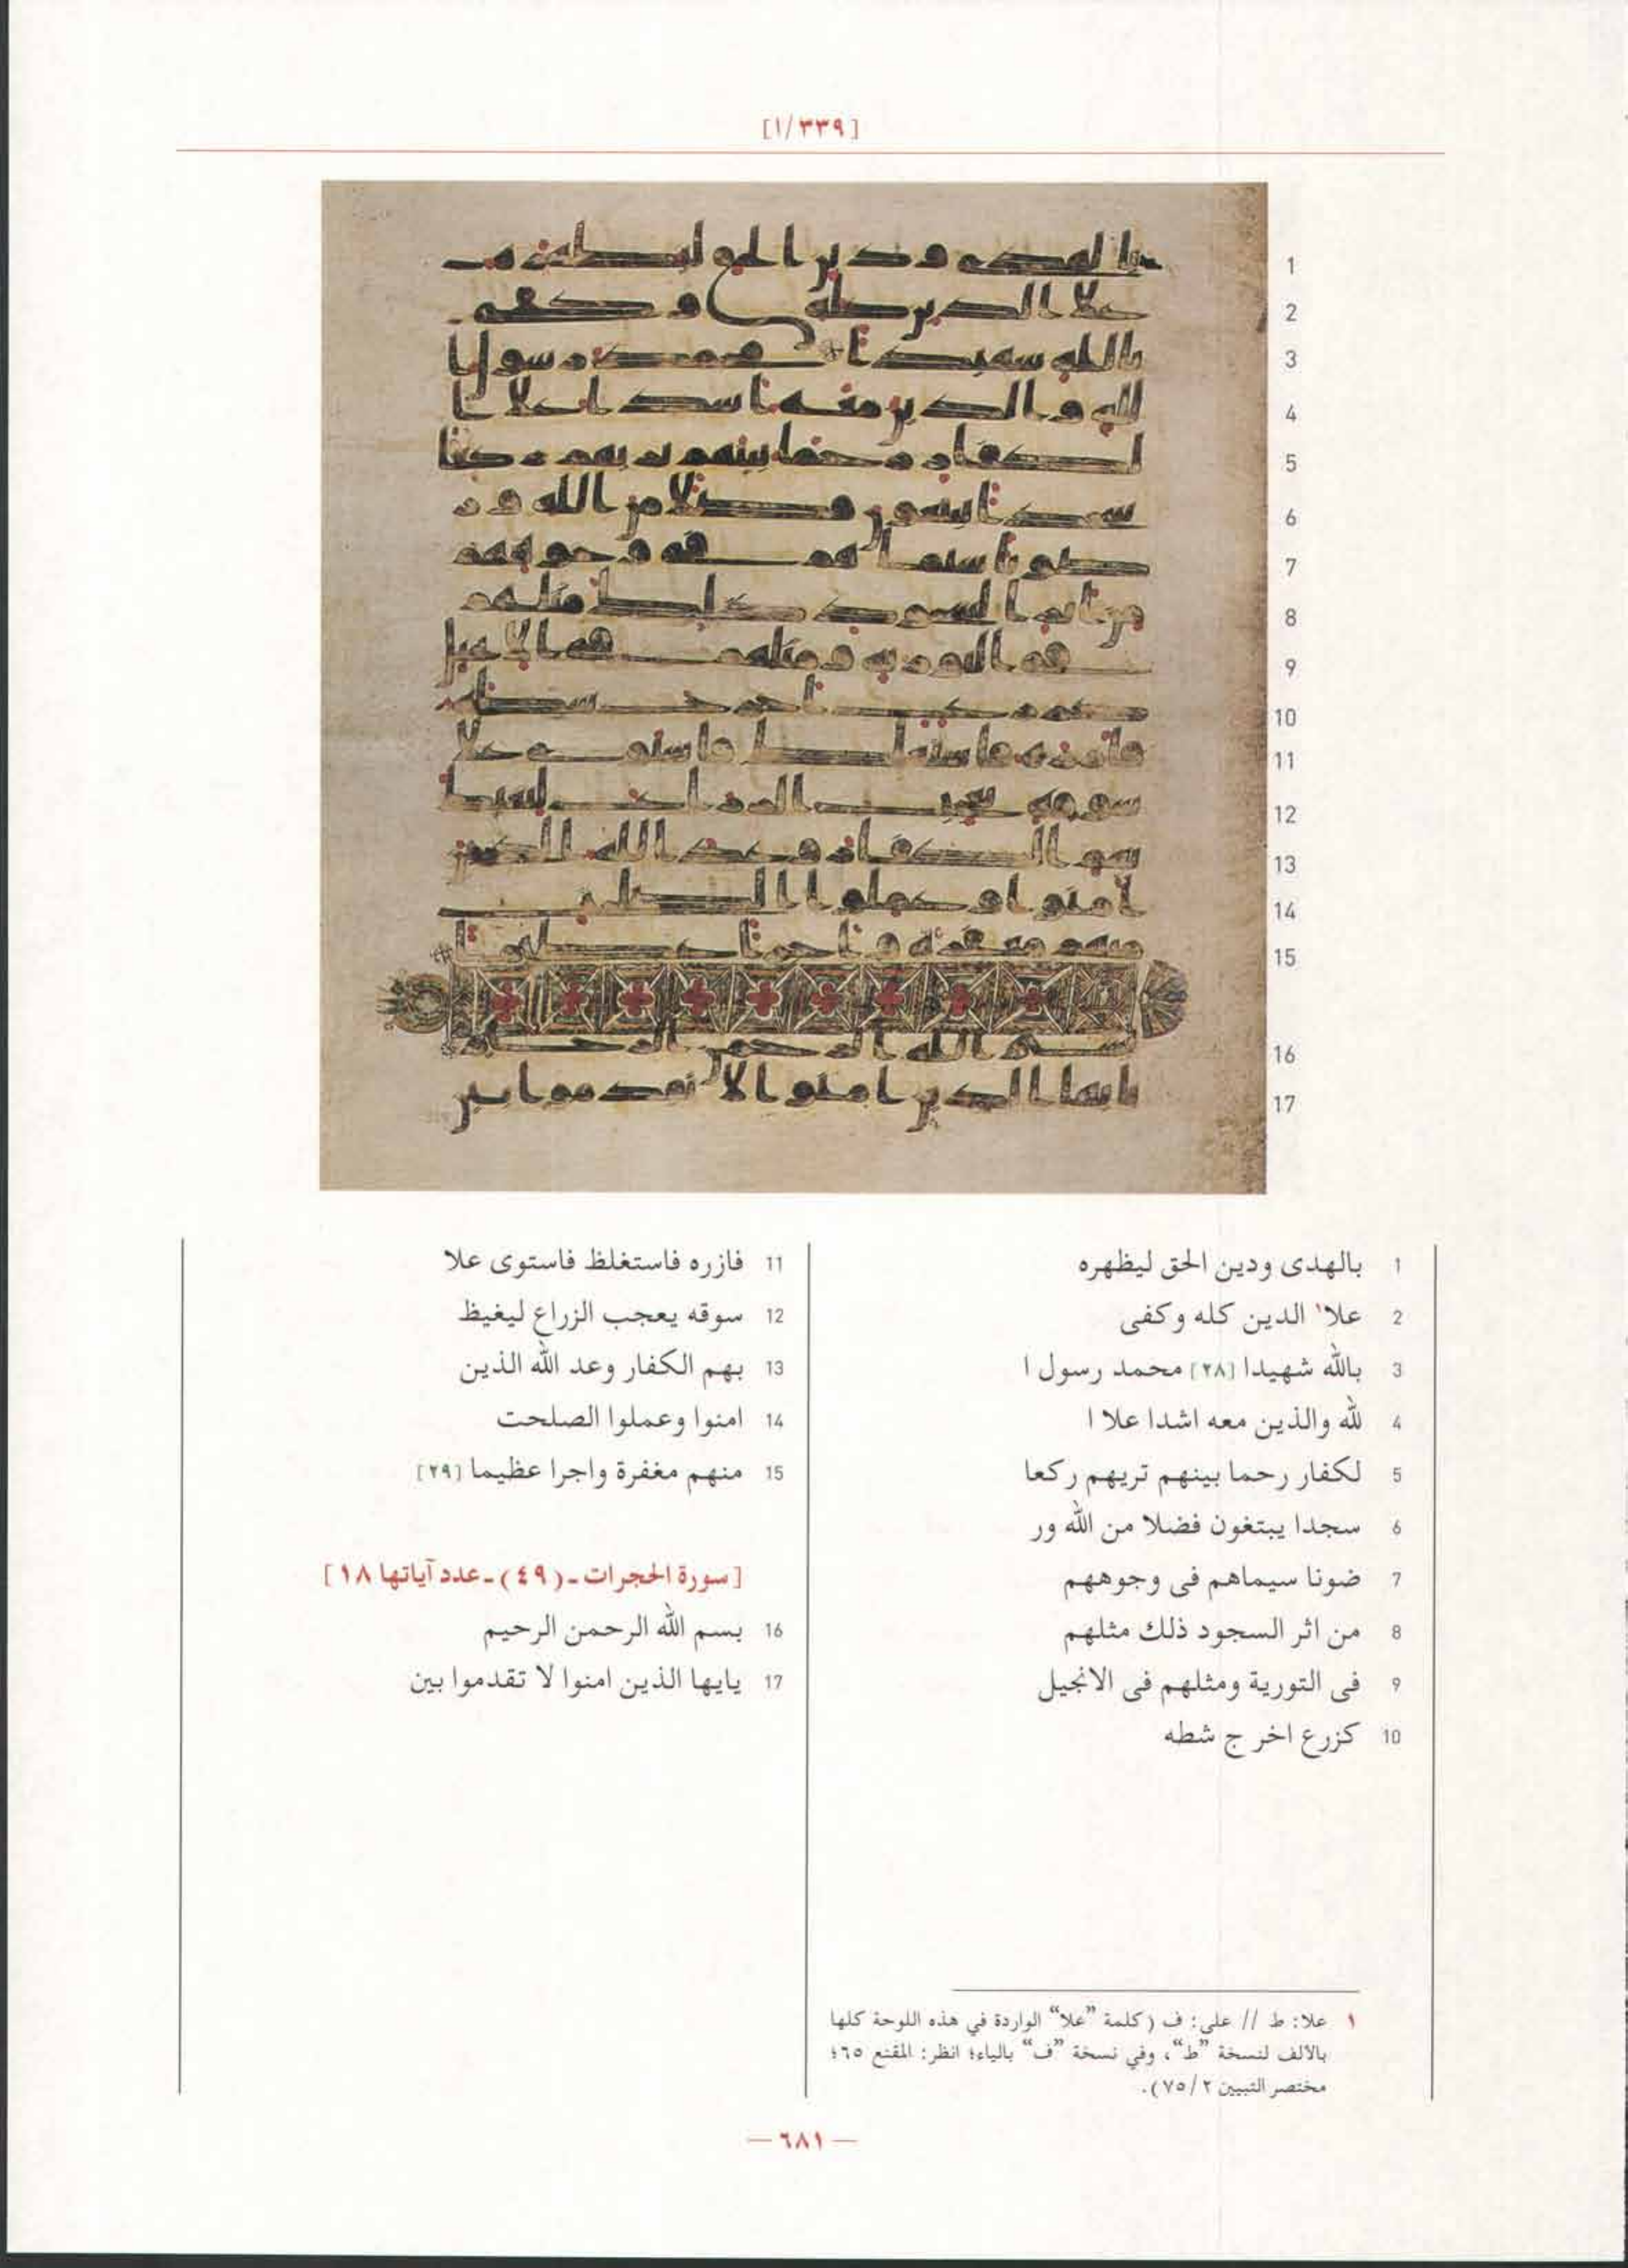 [١/٣٣٩]
1
2
3
4
5
6
7
8
9
10
11
12
13
14
15
16
17
1 بالهدى ودين الحق ليظهره
2 علا١ الدين كله وكفى
3 بالله شهيدا [٢٨] محمد رسول ا
4 لله والذين معه اشدا علا ا
5 لكفار رحما بينهم تريهم ركعا
6 سجدا يبتغون فضلا من الله ور
7 ضونا سيماهم فى وجوههم
8 من اثر السجود ذلك مثلهم
9 فى التورية ومثلهم فى الانجيل
10 كزرع اخر ج شطه
11 فازره فاستغلظ فاستوى علا
12 سوقه يعجب الزراع ليغيظ
13 بهم الكفار وعد الله الذين
14 امنوا وعملوا الصلحت
15 منهم مغفرة واجرا عظيما [٢٩]
[سورة الحجرات ـ (٤٩) ـ عدد آياتها ١٨]
16 بسم الله الرحمن الرحيم
17 يايها الذين امنوا لا تقدموا بين
١ علا: ط // على: ف (كلمة ”علا“ الواردة في هذه اللوحة كلها
بالألف لنسخة ”ط“، وفي نسخة ”ف“ بالياء؛ انظر: المقنع ٦٥؛
مختصر التبيين ٢/ ٧٥).
— ٦٨١ —